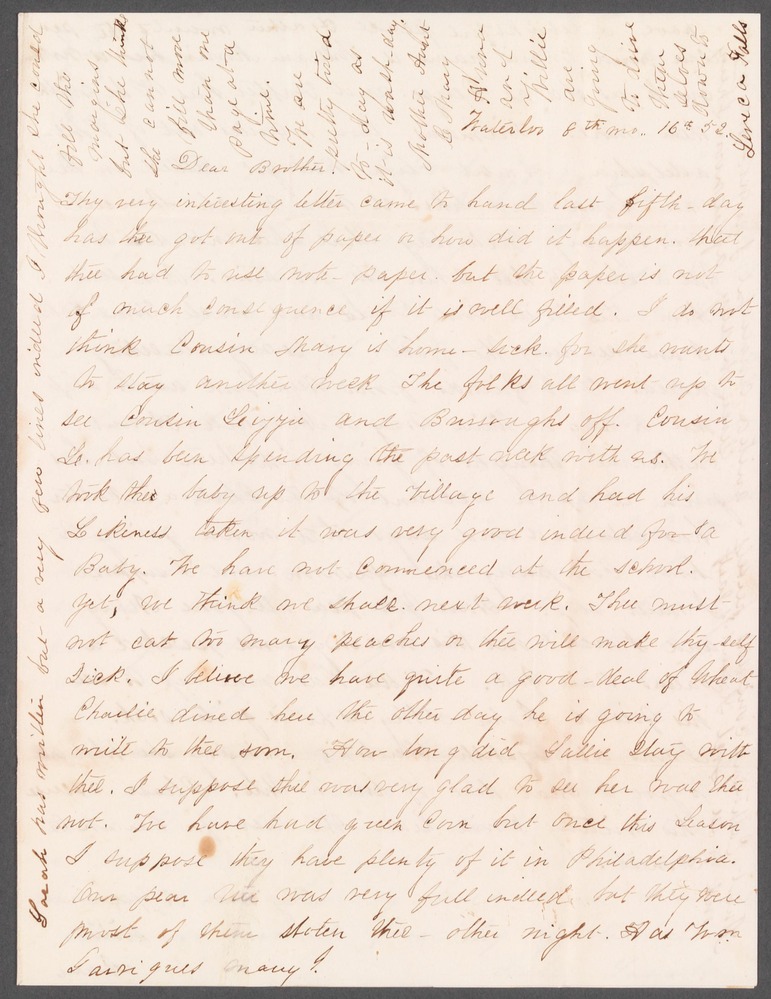 Waterloo 8th mo.. 16th 52.
Dear Brother!
Thy very interesting letter came to hand last fifth-day
has thee got out of paper or how did it happen. that
thee had to use note-paper. but the paper is not
of much consequence if it is well filled. I do not
think Cousin Mary is home-sick. for she wants
to stay another week The folks all went up to
see Cousin Lizzie and Burroughs off. Cousin
L. has been spending the past week with us. We
took the baby up to the Village and had his
Likeness taken it was very good indeed for a
Baby. We have not commenced at the school.
yet, we think we shall. next week. Thee must
not eat too many peaches or thee will make thy-self
Sick. I believe we have quite a good-deal of Wheat
Charlie dined here the other day he is going to
write to thee soon. How long did Sallie stay with
thee. I suppose thee was very glad to see her was thee
not. We have had green Corn but once this Season
I suppose they have plenty of it in Philadelphia.
Our pear tree was very full indeed, but they were
most of them stolen the-other night. Has Wm
Garrigues many?
Sarah has written but a very few lines indeed I thought she could
fill the
margins
but she thinks
she cannot
fill more
than one
page at a
time.
We are
pretty tired
to day as
it is wash-day.
Mother Aunt
C Mary
Anna
and
Willie
are
going
to drive
them
selves
down to
Seneca Falls